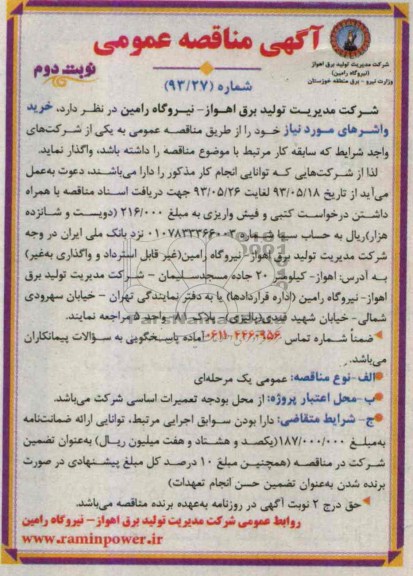 آگهی مناقصه عمومی
شرکت مدیریت تولید برق اهواز
(نیروگاه رامین)
وزارت نیرو - برق منطقه خوزستان
نوبت دوم
شماره (۹۳/۲۷)
شرکت مدیریت تولید برق اهواز- نیروگاه رامین در نظر دارد، خرید
واشرهای مورد نیاز خود را از طریق مناقصه عمومی به یکی از شرکت‌های
واجد شرایط که سابقه کار مرتبط با موضوع مناقصه را داشته باشد، واگذار نماید.
لذا از شرکت‌هایی که توانایی انجام کار مذکور را دارا می‌باشند، دعوت به‌عمل
می‌آید از تاریخ ۹۳/۰۵/۱۸ لغایت ۹۳/۰۵/۲۶ جهت دریافت اسناد مناقصه با همراه
داشتن درخواست کتبی و فیش واریزی به مبلغ ۲۱۶/۰۰۰ (دویست و شانزده
هزار)ریال به حساب سیبا شماره ۰۱۰۷۸۳۳۳۶۶۰۰۳ نزد بانک ملی ایران در وجه
شرکت مدیریت تولید برق اهواز- نیروگاه رامین(غیر قابل استرداد و واگذاری به‌غیر)
به آدرس: اهواز- کیلومتر ۲۰ جاده مسجدسلیمان - شرکت مدیریت تولید برق
اهواز- نیروگاه رامین (اداره قراردادها) یا به دفتر نمایندگی تهران - خیابان سهروردی
شمالی- خیابان شهید قندی(پالیزی)- پلاک ۸۱- واحد ۵ مراجعه نمایند.
ضمناً شماره تماس ۰۶۱۱-۴۴۶۰۹۵۶ آماده پاسخگویی به سؤالات پیمانکاران
می‌باشد.
الف-نوع مناقصه: عمومی یک مرحله‌ای
ب-محل اعتبار پروژه: از محل بودجه تعمیرات اساسی شرکت می‌باشد.
ج- شرایط متقاضی: دارا بودن سوابق اجرایی مرتبط، توانایی ارائه ضمانت‌نامه
به‌مبلغ ۱۸۷/۰۰۰/۰۰۰(یکصد و هشتاد و هفت میلیون ریال) به‌عنوان تضمین
شرکت در مناقصه (همچنین مبلغ ۱۰ درصد کل مبلغ پیشنهادی در صورت
برنده شدن به‌عنوان تضمین حسن انجام تعهدات)
حق درج ۲ نوبت آگهی در روزنامه به‌عهده برنده مناقصه می‌باشد.
روابط عمومی شرکت مدیریت تولید برق اهواز- نیروگاه رامین
www.raminpower.ir